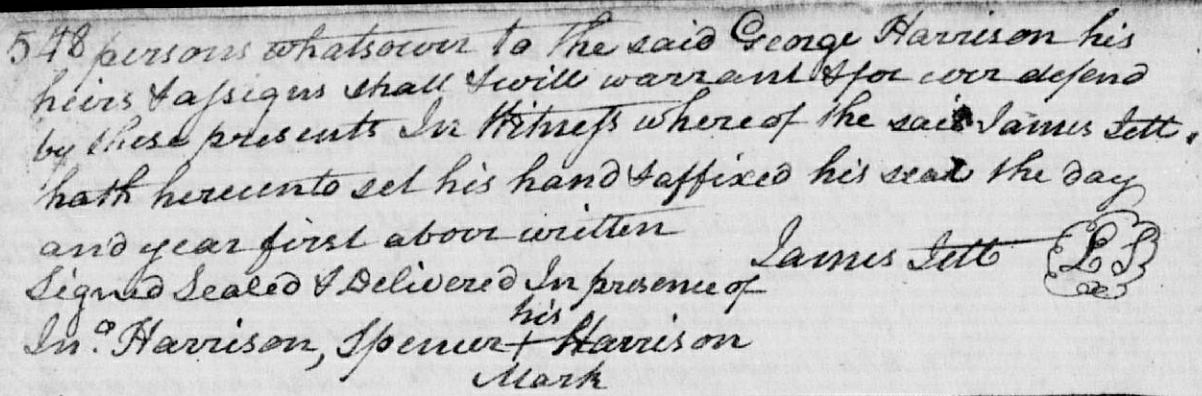 548 persons whatsoever to the said George Harrison his
heirs & assigns shall & will warrant & for ever defend
by these presents In Witness where of the said James Tett
hath hereunto set his hand & affixed his seal the day
and year first above written
James Tett LS
Signed Sealed & Delivered In presence of
Jno. Harrison, Spencer his + Mark Harrison